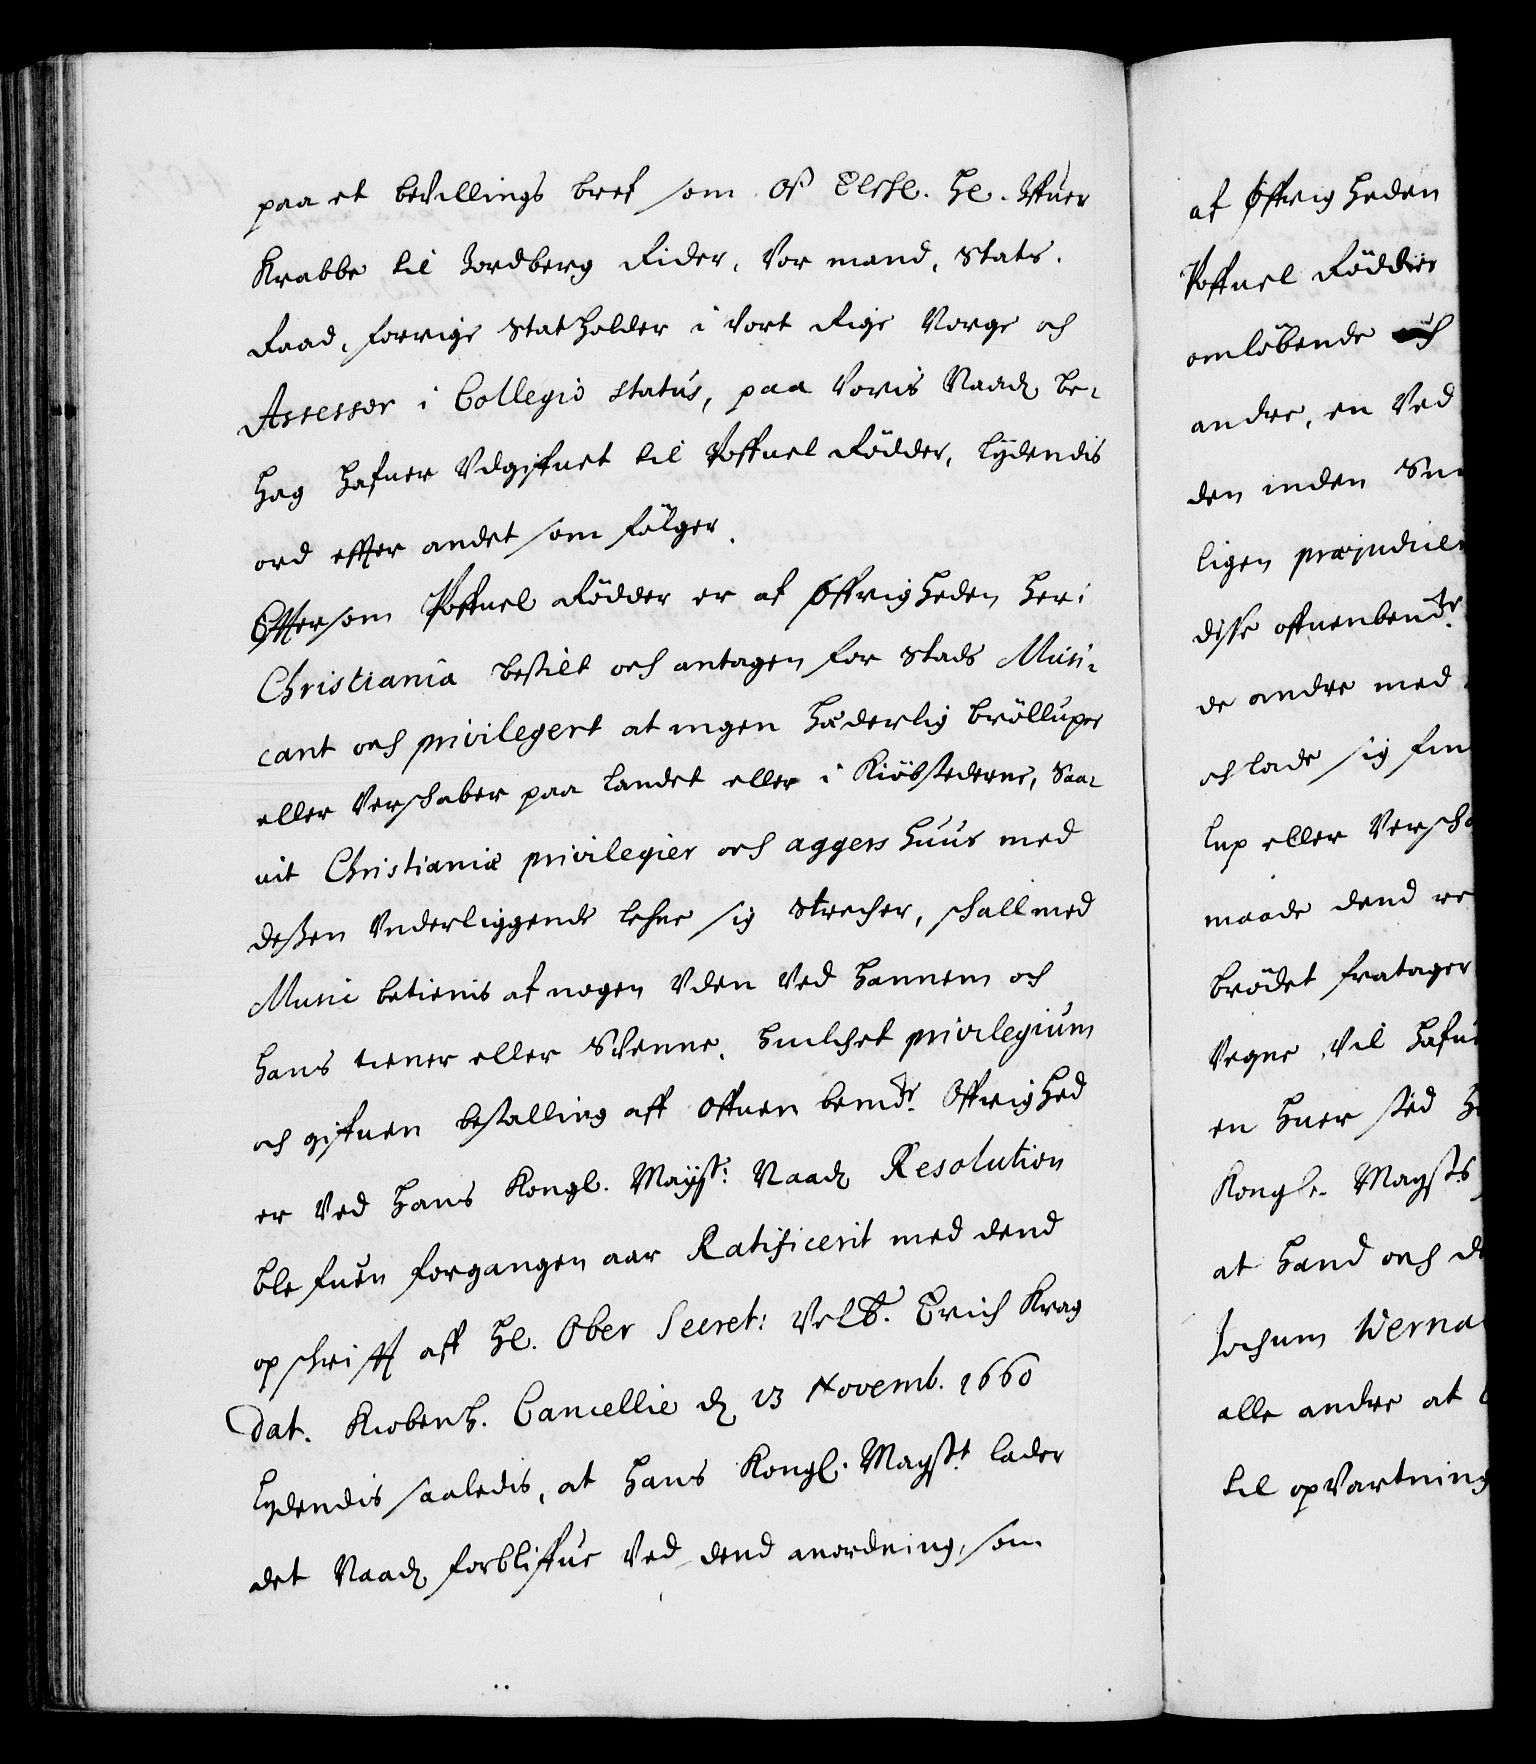 paa et bevillings bref som Oß Elskl. Hr. Ifuer
Krabbe til Jordberg Rider, Vor mand, Stats.
Raad, forrige Statholder i vort Rige Norge och
Assessor i Collegio status, paa voris Naadz be-
hag hafuer Udgifuet til Poffuel Rödder, lydendis
ord effter andet som fölger.
Effttersom Poffuel Rödder er af Öffrigheden her i
Christiania bestilt och antagen for Stads Musi-
cant och privilegert at ingen hæderlig brölluper
eller Verschaber paa Landet eller i Kiöbstederne, Saa-
vit Christianiæ privilegier och aggers Huus med
deßen Underliggende Lehne sig Strecher, schall med
Music betienis af nogen Uden Ved hannem och
hans tiener eller Svenne, huilchet privilegium
och gifuen bestalling aff Offuen bemdte. Öffrighed
er Ved hans Kongl. Mayst: Naadz Resolution
blefuen forgangen aar Ratificerit med dend
opschrifft aff Hr. Ober Secret: Velb. Erich Krag
dat. Kiobenh. Cancellie dz 13 Novemb. 1660
lydendis saaledis, at hans Kongl. Mayst. lader
det Naadz forbliffue Ved dend anordning, som
af Öffrigheden
Poffuel Rödder
omlöbende och
andre, en Ved
den inden
ligen
disse offuenbendte.
de andre med
och lade sig
lup eller
maade dend
brödet fratager
Vegne, Vil
en huer sted
Kongle. Maysts
at hand och
Jochum
alle andre at
til opvartning